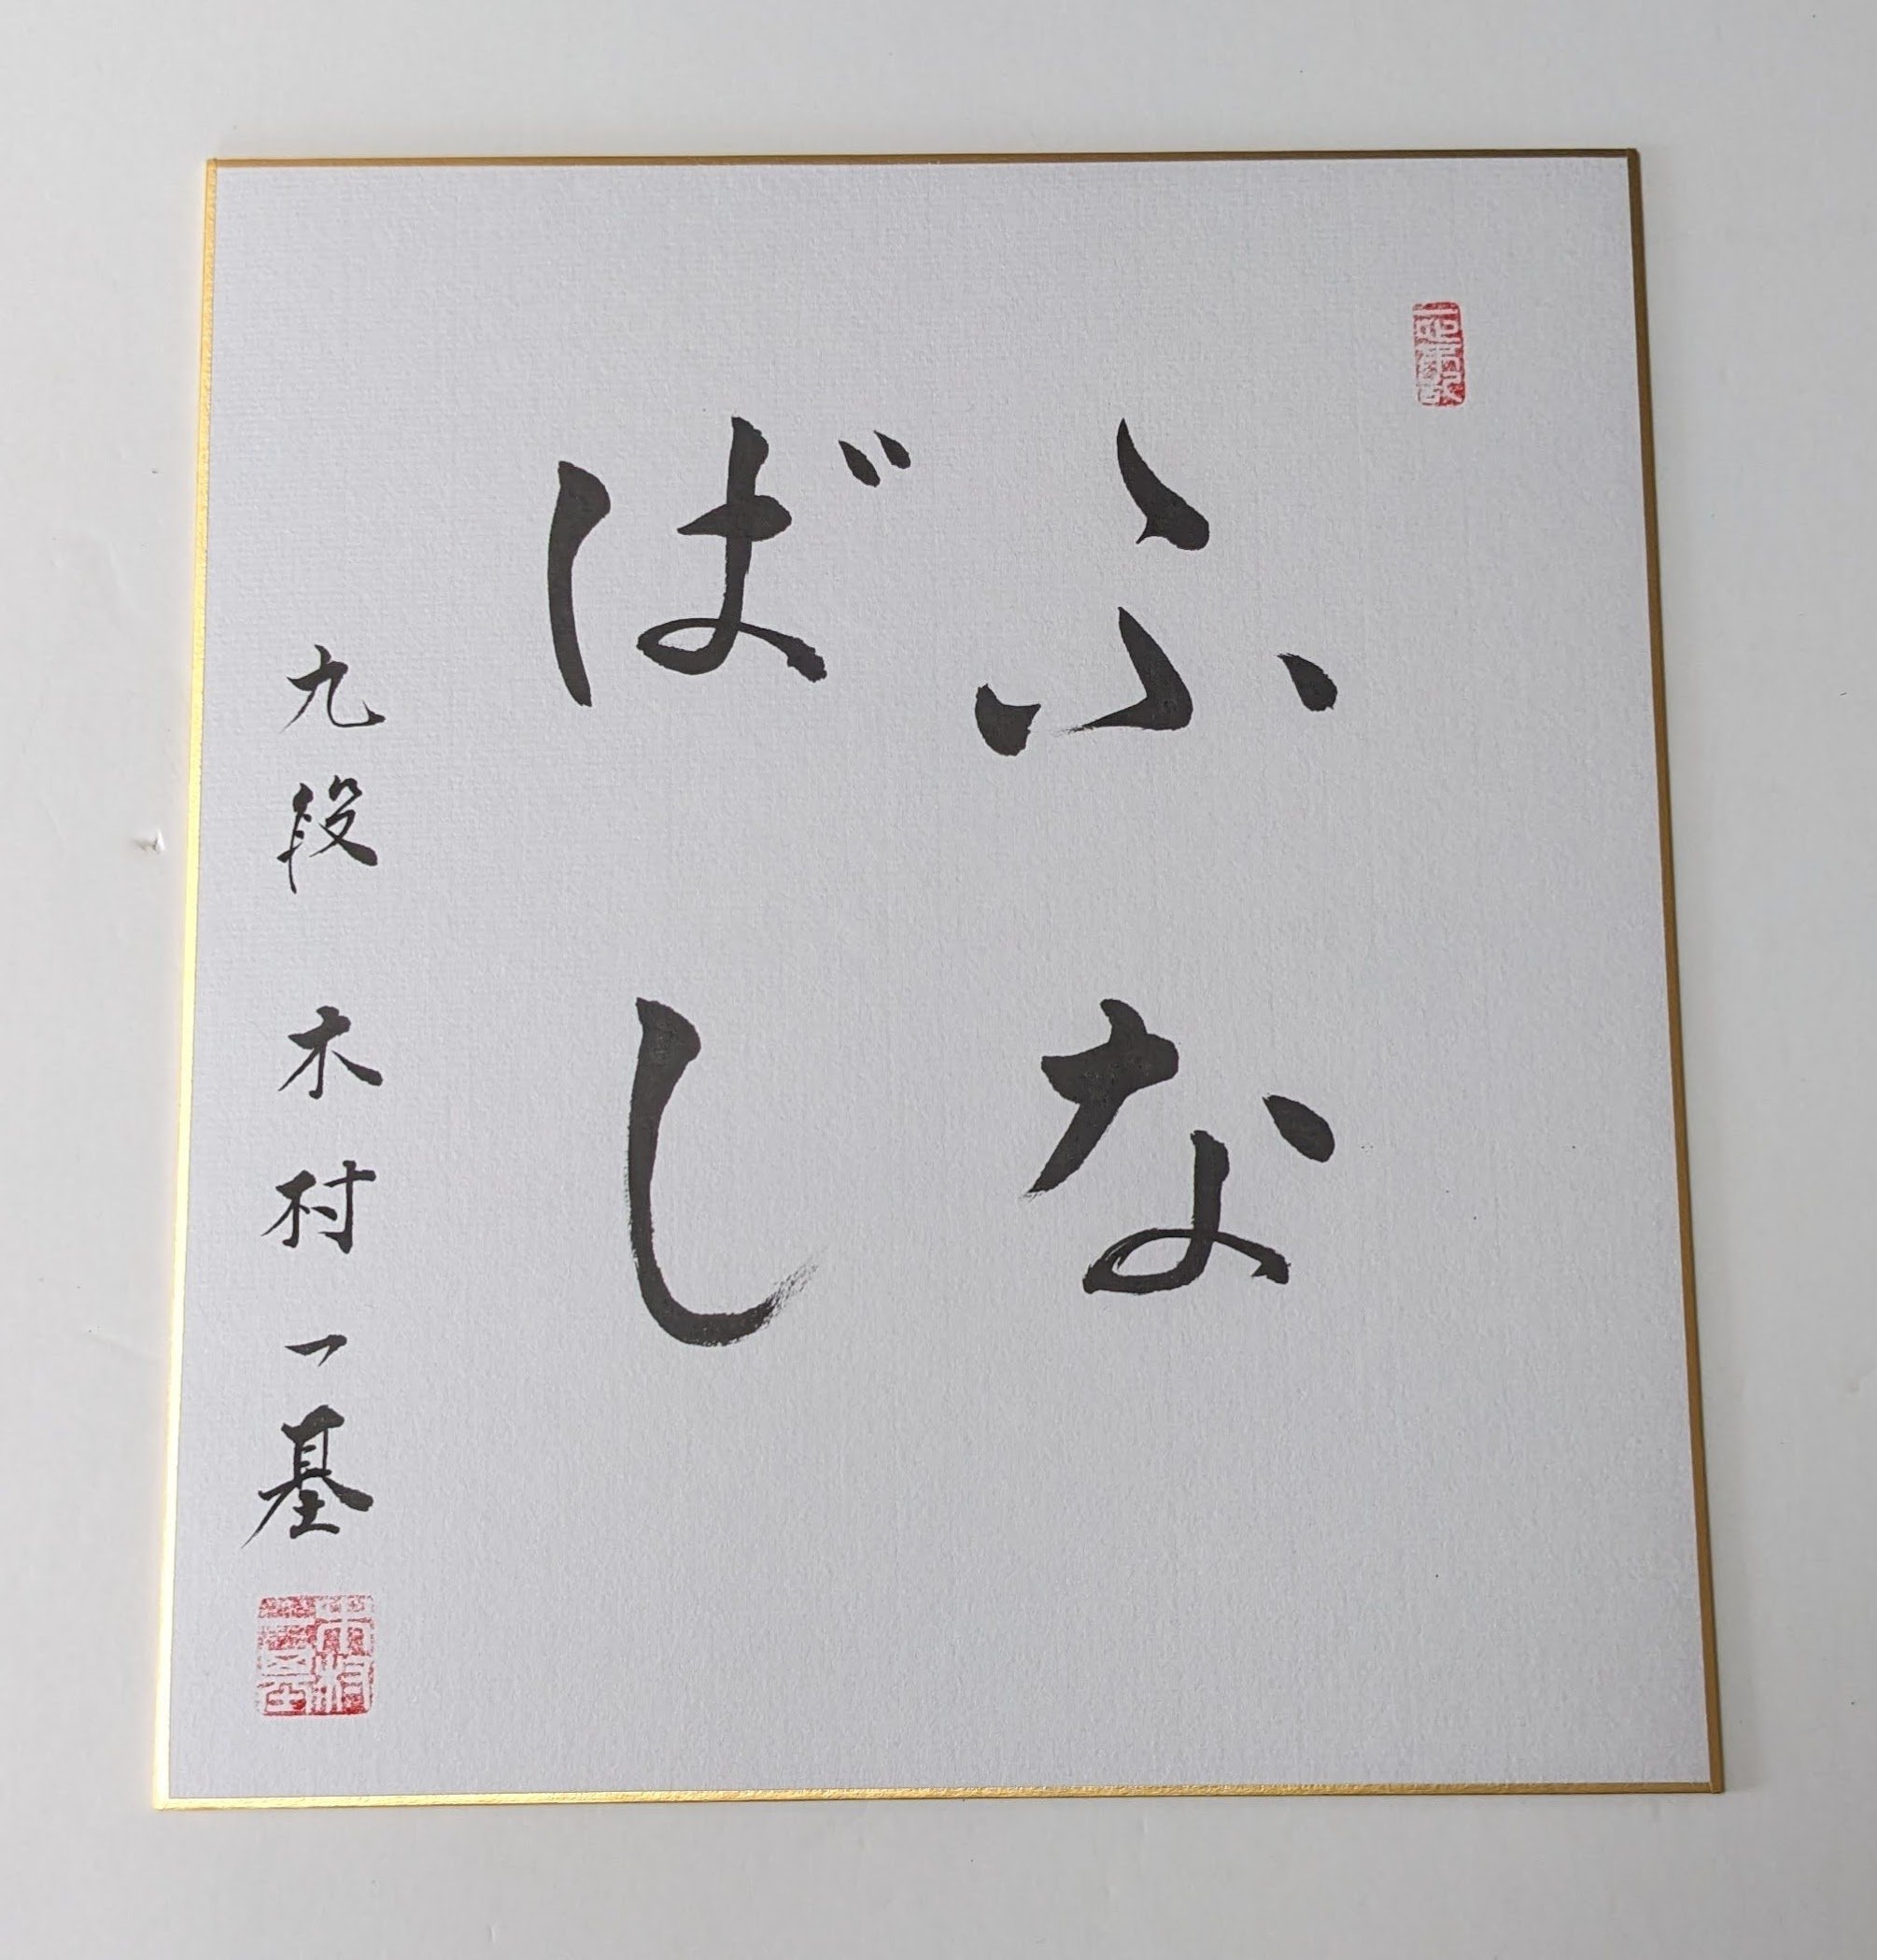 ふな
ばし
九段 木村一基
木村一基